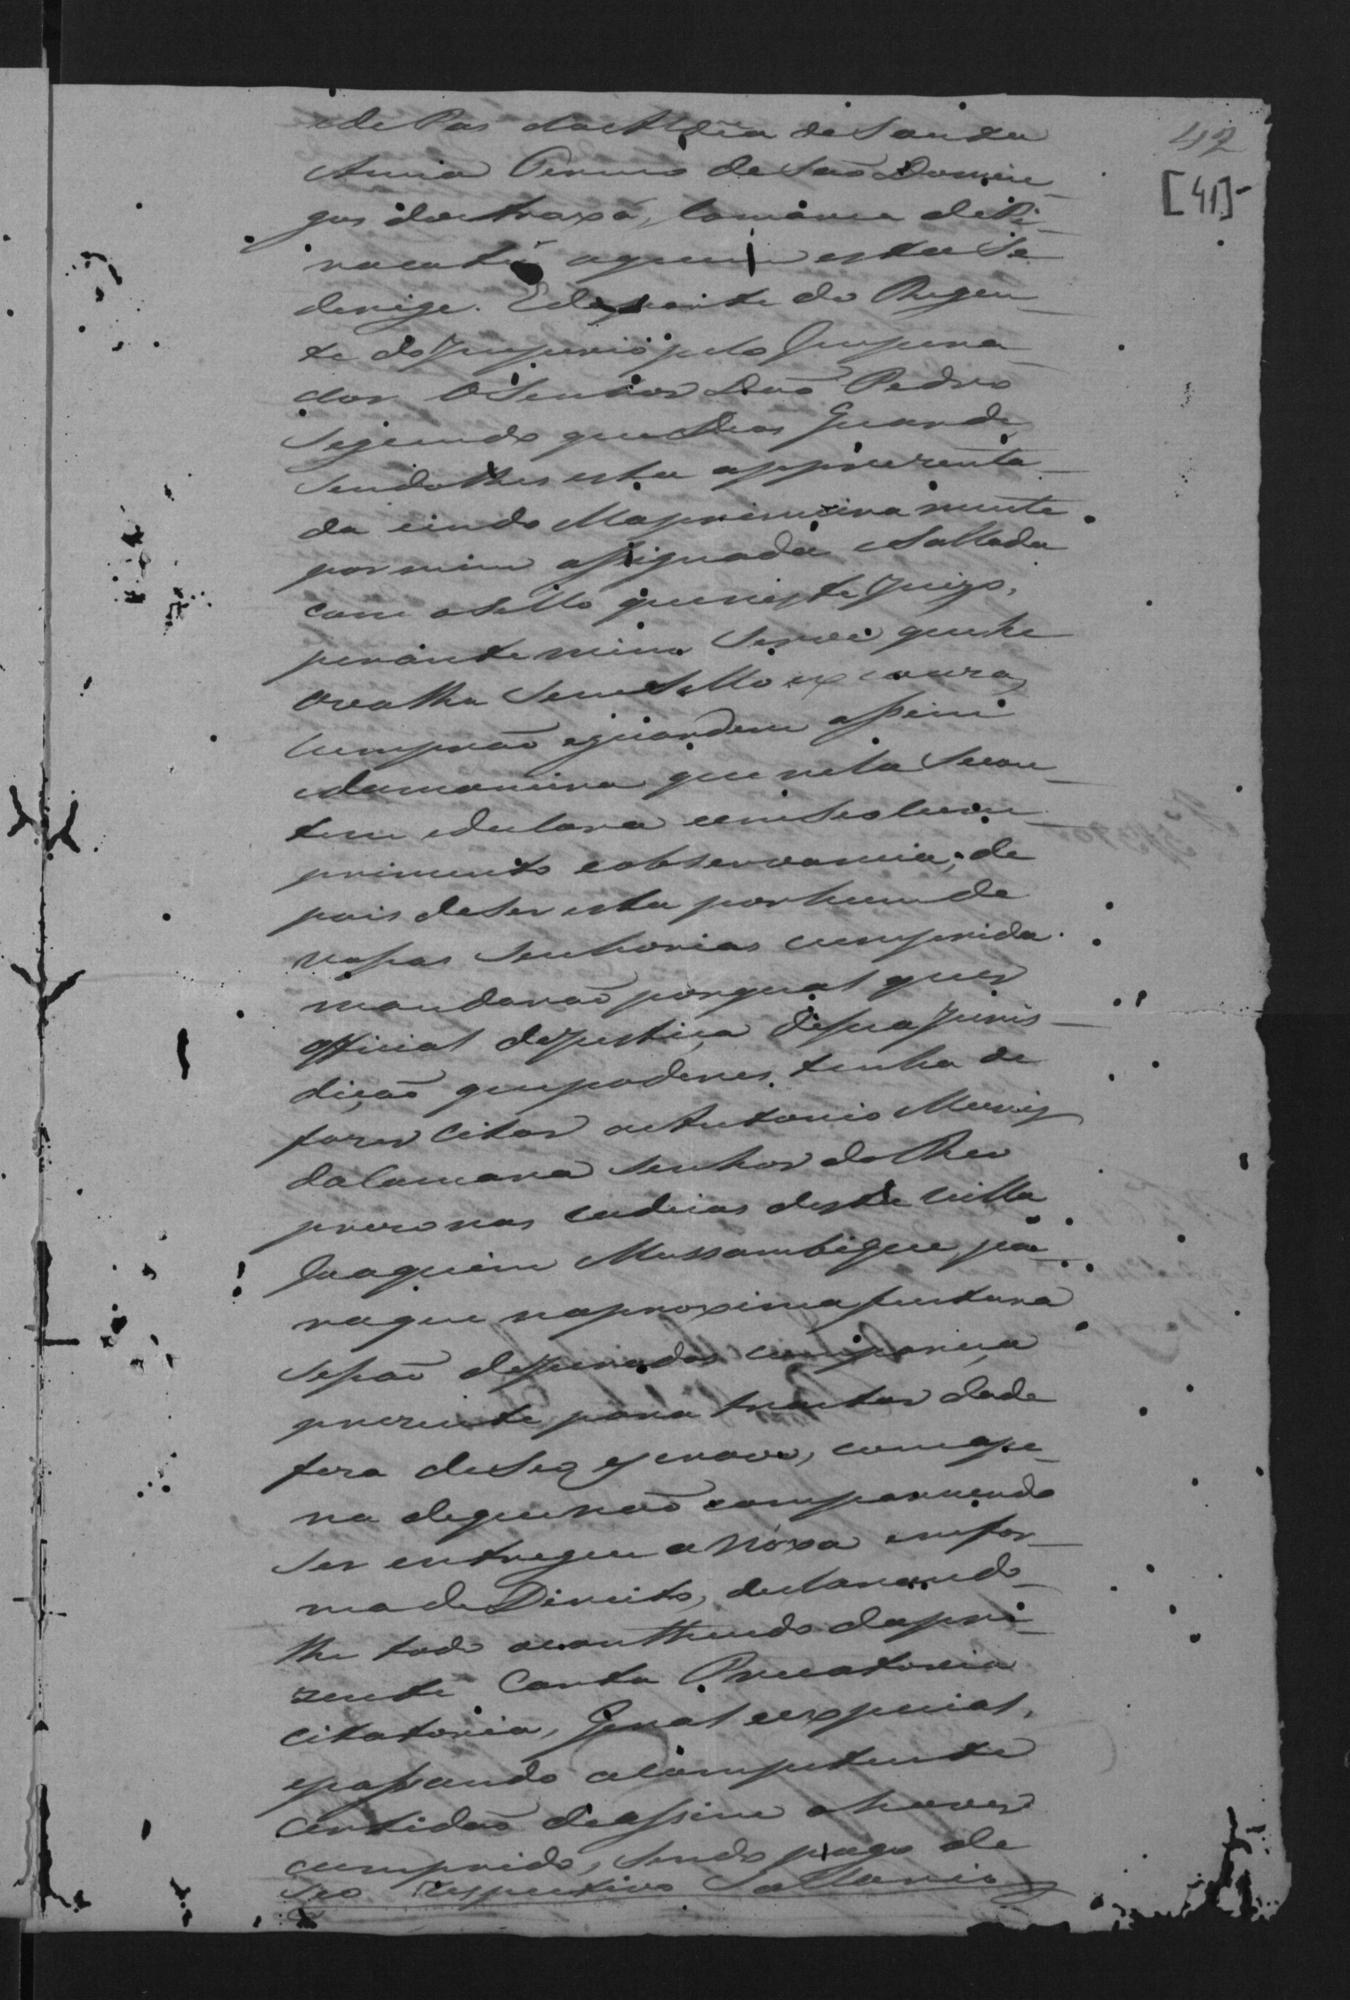 42
[41]
de Pas da Aldêa de Santa
Anna Termo de São Domin-
gos do Araxá, Comarca de Pa-
racatú aquem esta se
derige. E da parte do Regen-
te do Imperio pelo Impera-
dor O Senhor Dom Pedro
Segundo que Deos Guarde,
sendolhes esta apprezenta-
da eindo Ma primeira mente
por mim assignada e sellada
com o sello que neste Juizo,
perante mim serve que he
o valha sem sello ex cauza,
Cumprão eguardem assim
edamaneira que nela secon-
tem edeclara eemseo cum-
primento eobservancia; de
pois deser esta por hum de
vossas senhorias cumprida
mandarão porqual quer
official dejustiça desua Juris-
dição quepoderes tenha de
fazer citar a Antonio Muniz
da Camara senhor do Reo
prezo nas cadeias desta Villa
Joaquim Mussambique, pa-
raque naproxima futura
sessão dejurados compareça
prezente para tractar dade
feza deseo escravo, comape-
na dequenão comparecendo
ser entregue a Noxa em for-
ma de Direito, declarando-
lhe todo oconthiudo dapri-
zente Carta Precatoria
citatoria, Geral eexpecial,
epassando aCompetente
Certidão deassim o haver
cumprido, sendo pago de
seo respectivo Sallario